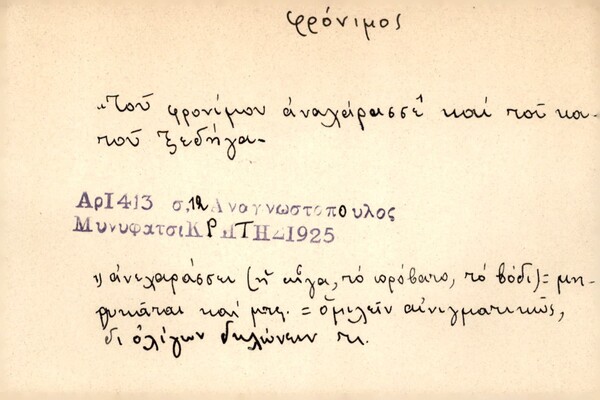 φρόνιμος
"Τοῦ φρονίμου ἀναχάρασσε¹ καί τοῦ κα-
τοῦ ξεδήγα-
ΑρΙ413 σ,12 Αναγνωστοπουλος
Μυνυφατσι ΚΡΗΤΗΣ1925
1) ἀνεχαράσσει (ἡ αἶγα, τό πρόβατο, τό βόδι) = μη-
ρυκᾶται καί μτφ. = ὁμιλεῖν αἰνιγματικῶς,
δι ὀλίγων δηλώνειν τι.